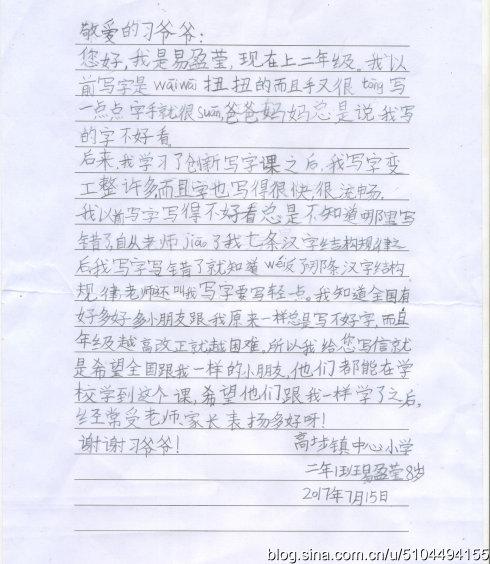 敬爱的习爷爷：
您好，我是易盈莹，现在上二年级。我以
前写字是wāiwāi扭扭的而且手又很tòng写
一点点字手就很suān，爸爸妈妈总是说我写
的字不好看。
后来，我学习了创新写字课之后，我写字变
工整许多，而且字也写得很快，很流畅。
我以前写字写得不好看总是不知道哪里写
错了，自从老师jiāo了我七条汉字结构规律之
后我写字写错了就知道wéi反了那条汉字结构
规律，老师还叫我写字要写轻点。我知道全国有
好多好多小朋友跟我原来一样总是写不好字，而且
年级越高改正就越困难，所以我给您写信就
是希望全国跟我一样的小朋友，他们都能在学
校学到这个课，希望他们跟我一样学了之后，
经常受老师、家长表扬多好呀！
谢谢习爷爷！ 高埗镇中心小学
二年1班易盈莹8岁
2017年7月15日
blog.sina.com.cn/u/5104494155